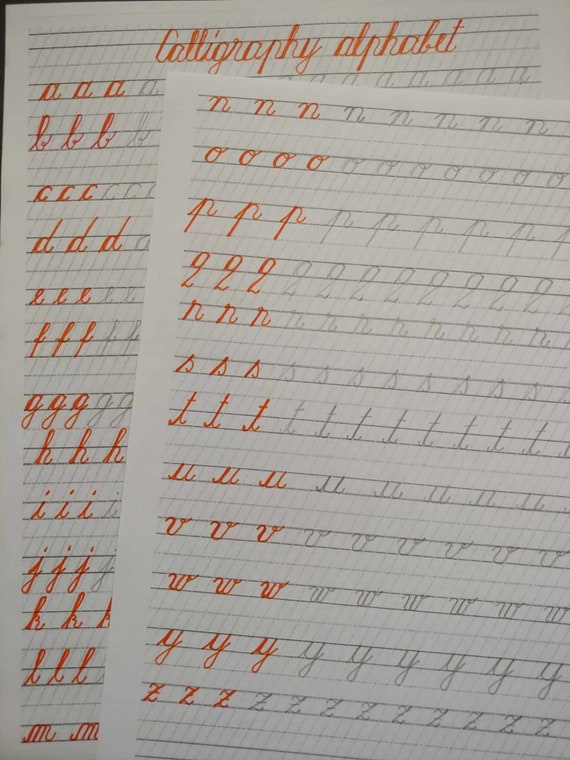 Calligraphy alphabet
a a a a a a a a a a a a a a
b b b b
c c c c c c
d d d d
e e e e e
f f f f f
g g g g g
h h h
i i i i
j j j j
k k k
l l l
m m
n n n n n n n n
o o o o o o o o o o o
p p p p p p p p p
q q q q q q q q q q q
r r r r r r r r r r r
s s s s s s s s s s s s
t t t t t t t t t t t t
u u u u u u u u
v v v v v v v v v
w w w w w w w w w
y y y y y y y y y
z z z z z z z z z z z z